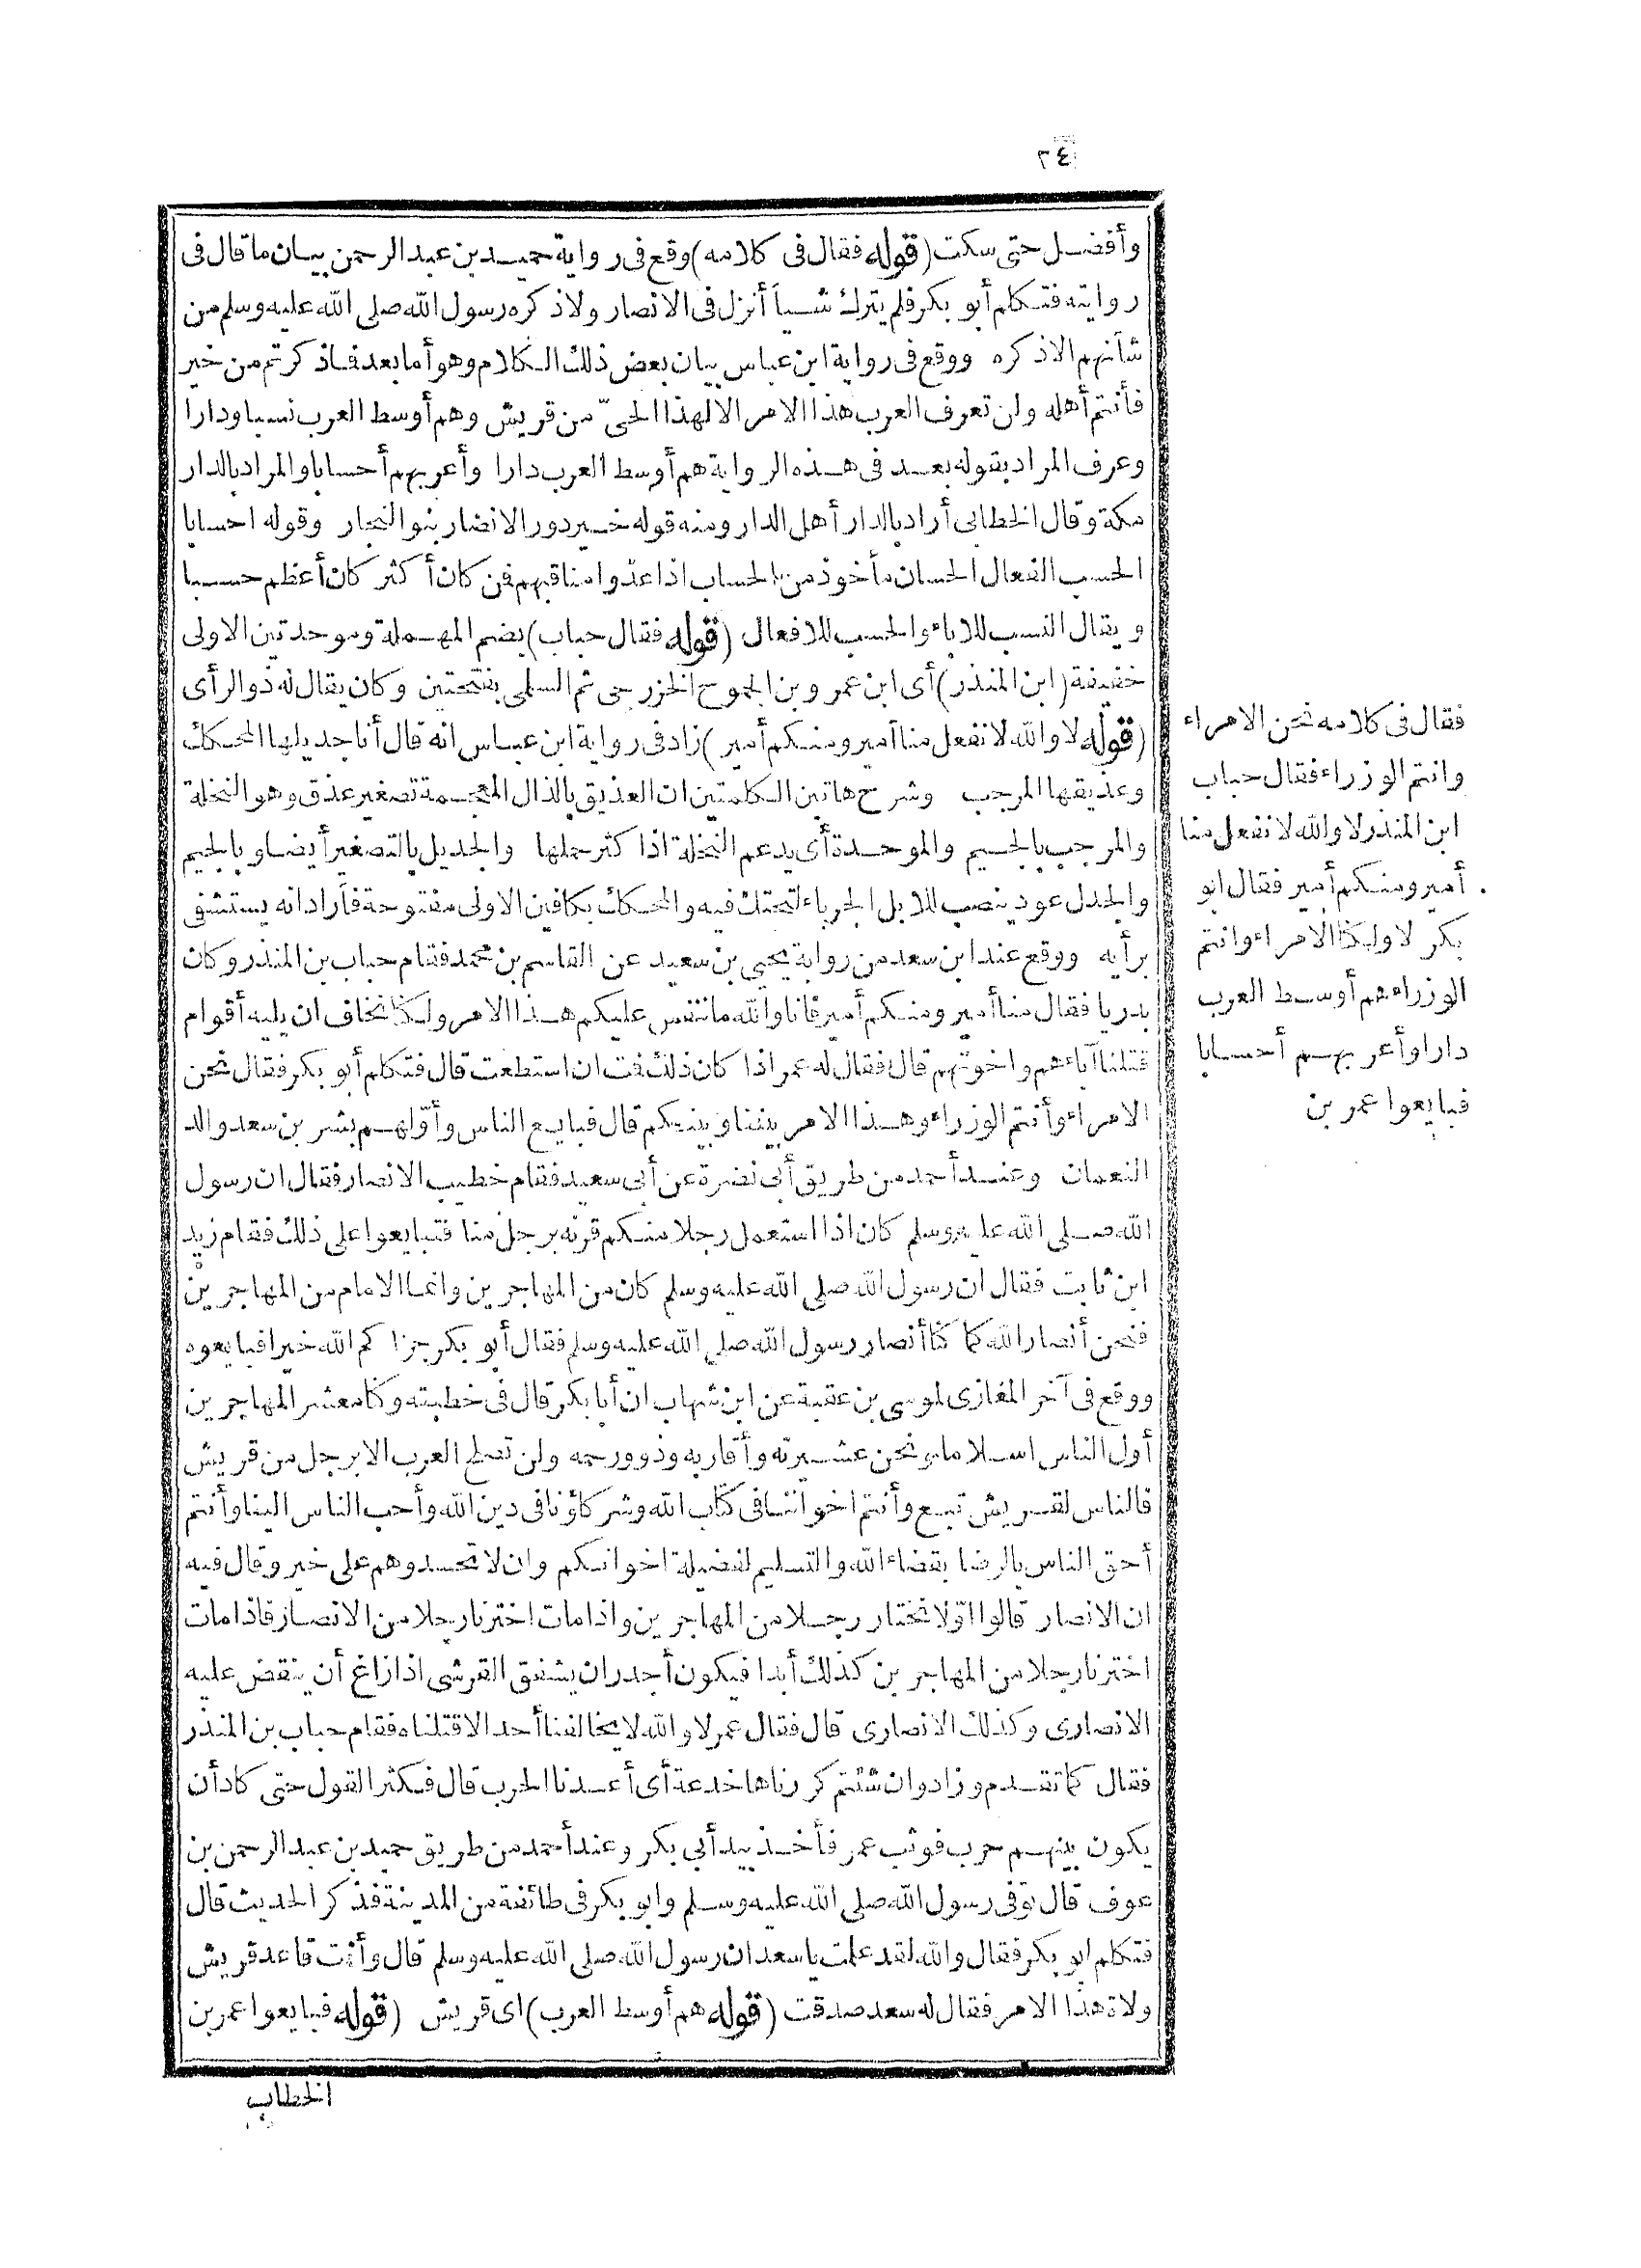 ٢٤
وأفضل حتى سكت (قوله فقال فى كلامه) وقع فى رواية حميد بن عبد الرحمن بيان ما قال فى
روايته فتكلم أبو بكر فلم يترك شيأ أنزل فى الانصار ولا ذكره رسول الله صلى الله عليه وسلم من
شأنهم الا ذكره ووقع فى رواية ابن عباس بيان بعض ذلك الكلام وهو أما بعد فما ذكرتم من خير
فأنتم أهله ولن تعرف العرب هذا الامر الا لهذا الحىّ من قريش وهم أوسط العرب نسبا ودارا
وعرف المراد بقوله بعد فى هذه الرواية هم أوسط العرب دارا وأعربهم أحسابا والمراد بالدار
مكة وقال الخطابى أراد بالدار أهل الدار ومنه قوله خير دور الانصار بنو النجار وقوله احسابا
الحسب الفعال الحسان مأخوذ من الحساب اذا عدّوا مناقبهم فمن كان أكثر كان أعظم حسبا
ويقال النسب للاباء والحسب للافعال (قوله فقال حباب) بضم المهملة وموحدتين الاولى
خفيفة (ابن المنذر) أى ابن عمرو بن الجموح الخزرجى ثم السلمى بفتحتين وكان يقال له ذو الرأى
(قوله لا والله لا نفعل منا أمير ومنكم أمير) زاد فى رواية ابن عباس انه قال أنا جذيلها المحكك
وعذيقها المرجب وشرح هاتين الكلمتين ان العذيق بالذال المعجمة تصغير عذق وهو النخلة
والمرجب بالجيم والموحدة أى يدعم النخلة اذا كثر حملها والجذيل بالتصغير أيضا وبالجيم
والجدل عود ينصب للابل الجرباء لتحتك فيه والمحكك بكافين الاولى مفتوحة فأراد انه يستشفى
برأيه ووقع عند ابن سعد من رواية يحيى بن سعيد عن القاسم بن محمد فقام حباب بن المنذر وكان
بدريا فقال منا أمير ومنكم أمير فانا والله ما ننفس عليكم هذا الامر ولكنا نخاف ان يليه أقوام
قتلنا آباءهم واخوتهم قال فقال له عمر اذا كان ذلك فمت ان استطعت قال فتكلم أبو بكر فقال نحن
الامراء وأنتم الوزراء وهذا الامر بيننا وبينكم قال فبايع الناس وأوّلهم بشر بن سعد والد
النعمان وعند أحمد من طريق أبى نضرة عن أبى سعيد فقام خطيب الانصار فقال ان رسول
الله صلى الله عليه وسلم كان اذا استعمل رجلا منكم قرنه برجل منا فتبايعوا على ذلك فقام زيد
ابن ثابت فقال ان رسول الله صلى الله عليه وسلم كان من المهاجرين وانما الامام من المهاجرين
فنحن أنصار الله كما كنا أنصار رسول الله صلى الله عليه وسلم فقال أبو بكر جزاكم الله خيرا فبايعوه
ووقع فى آخر المغازى لموسى بن عقبة عن ابن شهاب ان أبا بكر قال فى خطبته وكنا معشر المهاجرين
أول الناس اسلاما ونحن عشيرته وأقاربه وذوو رحمه ولن تصلح العرب الا برجل من قريش
فالناس لقريش تبع وأنتم اخواننا فى كتاب الله وشركاؤنا فى دين الله وأحب الناس الينا وأنتم
أحق الناس بالرضا بقضاء الله والتسليم لفضيلة اخوانكم وان لا تحسدوهم على خير وقال فيه
ان الانصار قالوا اوّلا نختار رجلا من المهاجرين واذا مات اخترنا رجلا من الانصار فاذا مات
اخترنا رجلا من المهاجرين كذلك أبدا فيكون أجدر ان يشفق القرشى اذا زاغ أن ينقض عليه
الانصارى وكذلك الانصارى قال فقال عمر لا والله لا يخالفنا أحد الا قتلناه فقام حباب بن المنذر
فقال كما تقدم وزاد وان شئتم كررناها خدعة أى أعدنا الحرب قال فكثر القول حتى كاد أن
يكون بينهم حرب فوثب عمر فأخذ بيد أبى بكر وعند أحمد من طريق حميد بن عبد الرحمن بن
عوف قال توفى رسول الله صلى الله عليه وسلم وابو بكر فى طائفة من المدينة فذكر الحديث قال
فتكلم ابو بكر فقال والله لقد علمت يا سعد ان رسول الله صلى الله عليه وسلم قال وأنت قاعد قريش
ولاة هذا الامر فقال له سعد صدقت (قوله هم أوسط العرب) اى قريش (قوله فبايعوا عمر بن
الخطاب
فقال فى كلامه نحن الامراء
وانتم الوزراء فقال حباب
ابن المنذر لا والله لا نفعل منا
أمير ومنكم أمير فقال ابو
بكر لا ولكنا الامراء وانتم
الوزراء هم أوسط العرب
دارا وأعربهم أحسابا
فبايعوا عمر بن